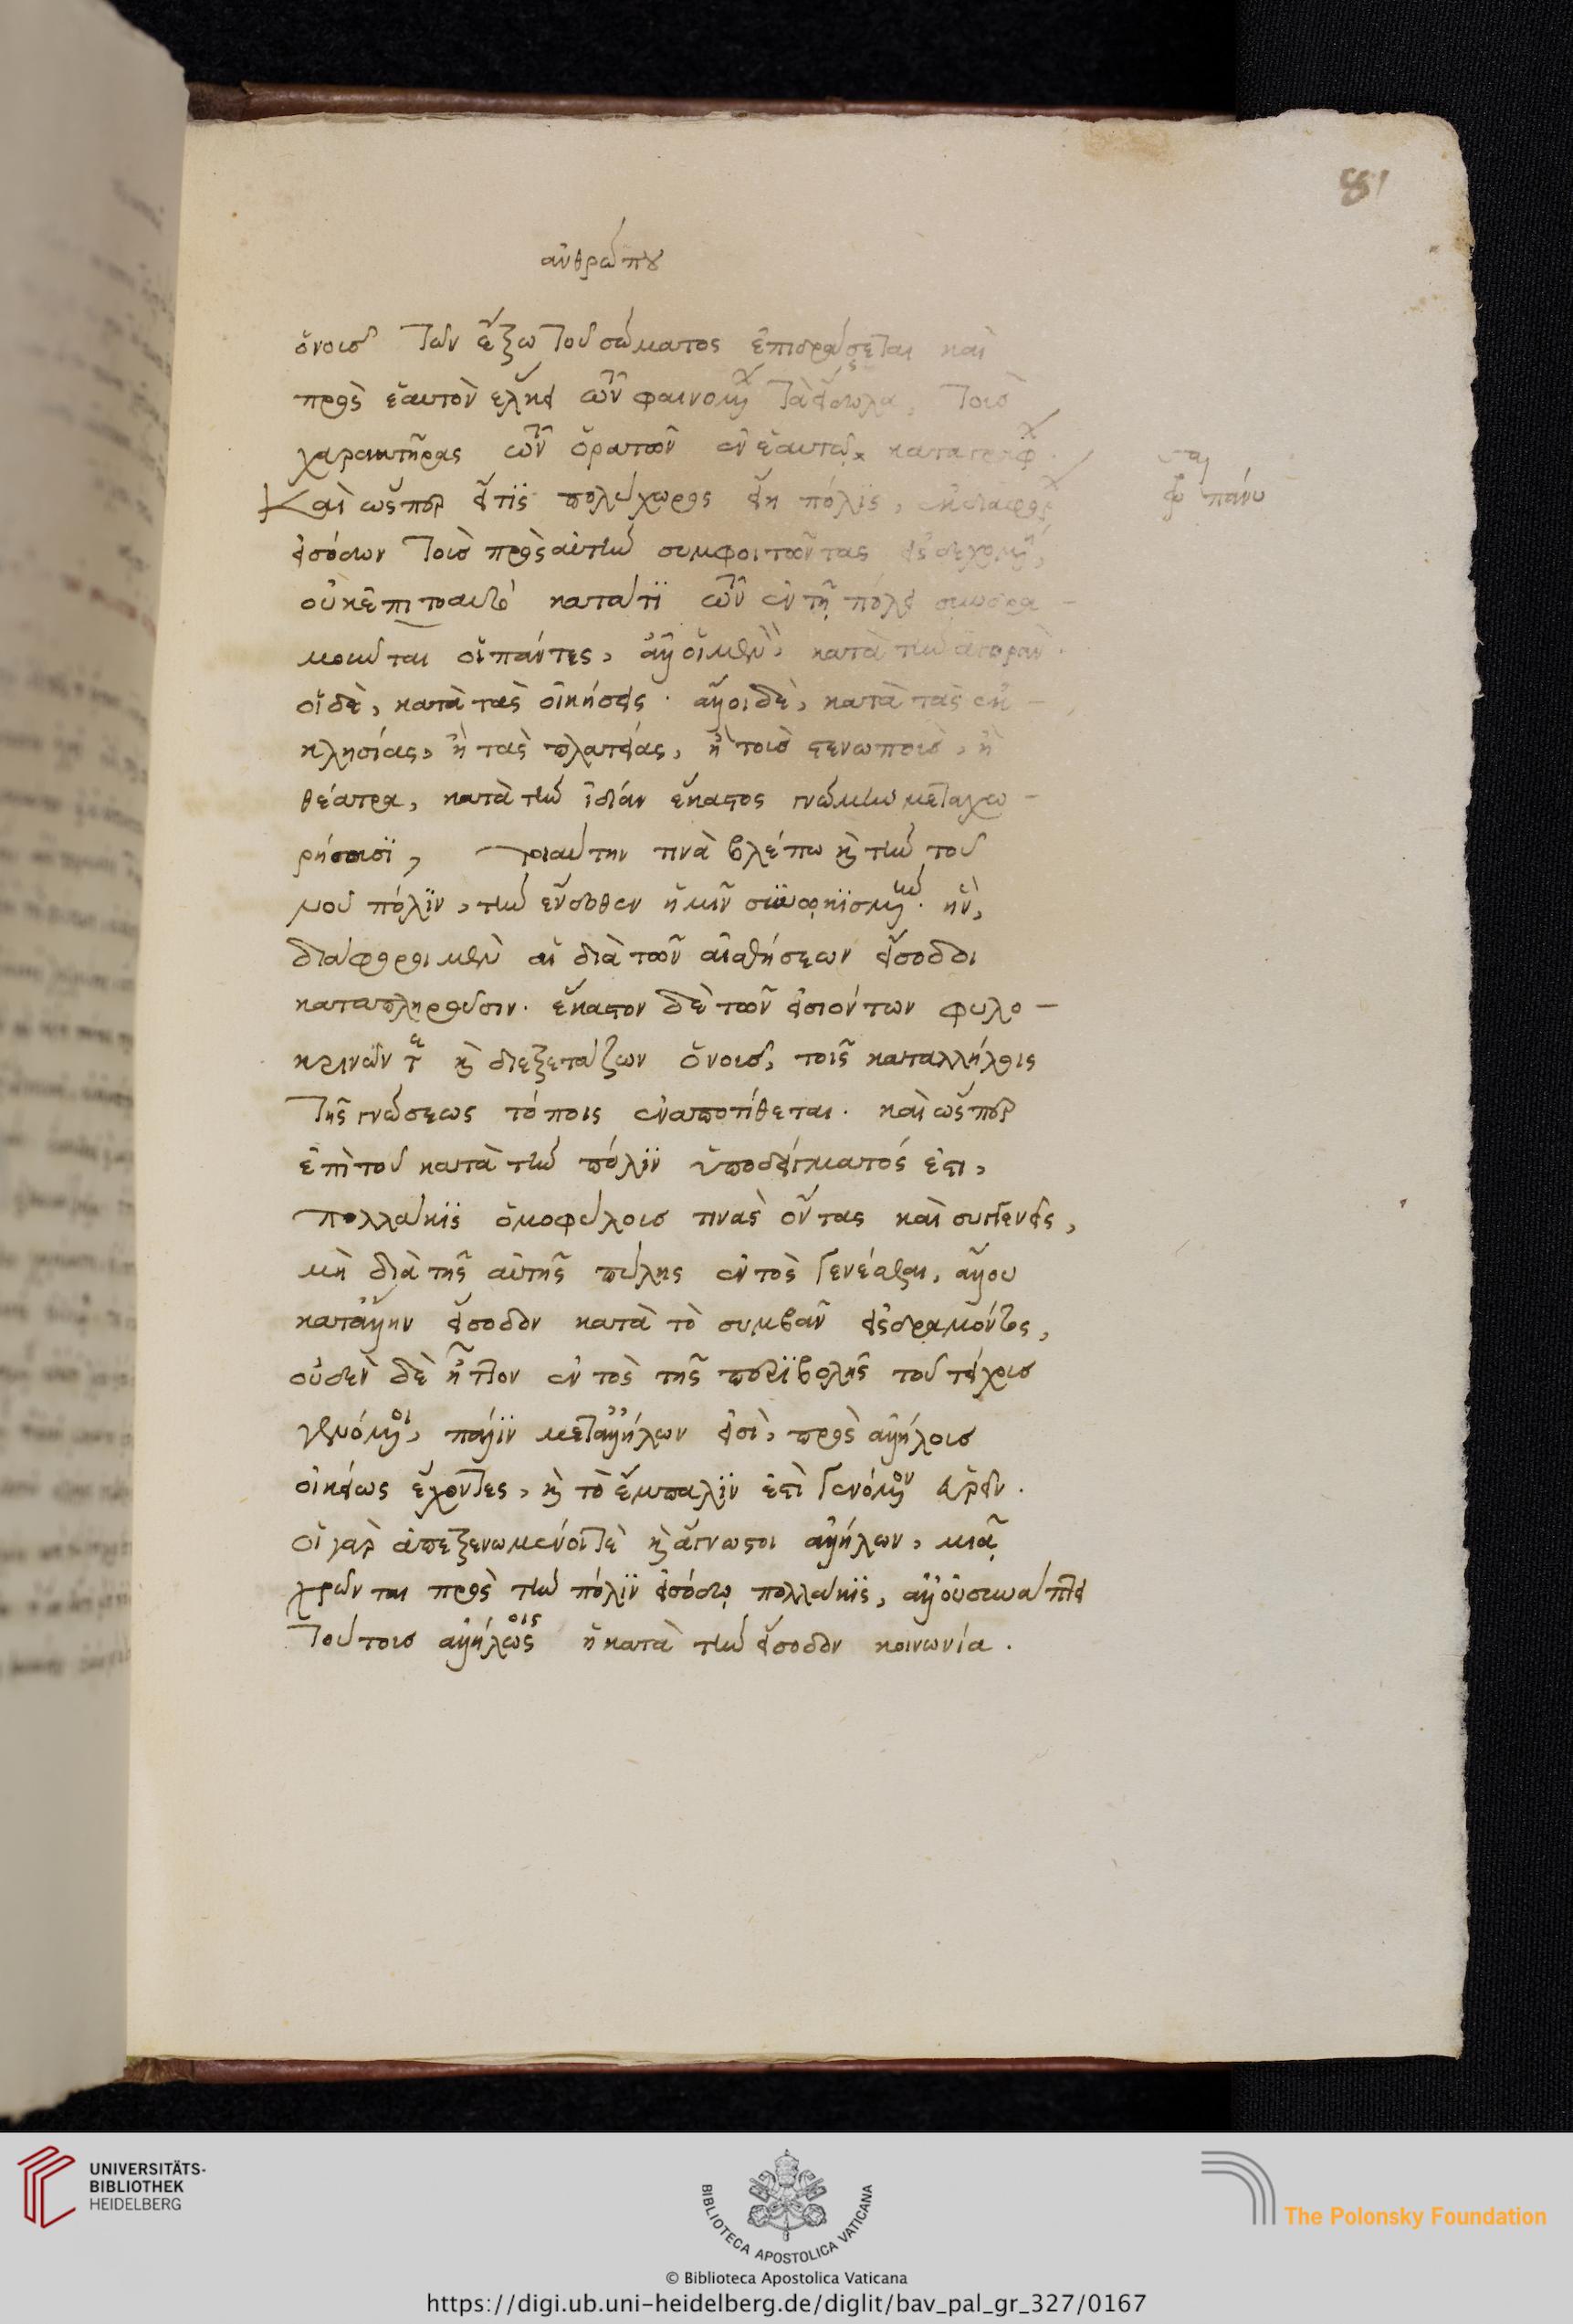 81
ἀνθρώπου
ὁ νοῦς τῶν ἔξω τοῦ σώματος ἐπιδράσσεται καὶ
πρὸς ἑαυτὸν ἕλκει τῶν φαινομένων τὰ εἴδωλα, τοὺς
χαρακτῆρας τῶν ὁρατῶν ἐν ἑαυτῷ καταγράφων.
Καὶ ὥσπερ εἴ τις πολύχωρος εἴη πόλις, ἐκ διαφόρων
πάνυ
εἰσόδων τοὺς πρὸς αὐτὴν συμφοιτῶντας εἰσδεχομένη,
οὐκ ἐπὶ τὸ αὐτὸ κατά τι τῶν ἐν τῇ πόλει συνδρα-
μοῦνται οἱ πάντες, ἀλλ' οἱ μὲν, κατὰ τὴν ἀγορὰν.
οἱ δὲ, κατὰ τὰς οἰκήσεις. ἄλλοι δὲ, κατὰ τὰς ἐκ-
κλησίας, ἢ τὰς πλατείας, ἢ τοὺς στενωποὺς, ἢ
θέατρα, κατὰ τὴν ἰδίαν ἕκαστος γνώμην μεταχω-
ρήσουσι, τοιαύτην τινὰ βλέπω καὶ τὴν τοῦ
νοῦ πόλιν, τὴν ἔνδοθεν ἡμῖν συνῳκισμένην. ἣν,
διάφοροι μὲν αἱ διὰ τῶν αἰσθήσεων εἴσοδοι
καταπληροῦσιν. ἕκαστον δὲ τῶν εἰσιόντων φυλο-
κρινῶν τε καὶ διεξετάζων ὁ νοῦς, τοῖς καταλλήλοις
τῆς γνώσεως τόποις ἐναποτίθεται. καὶ ὥσπερ
ἐπὶ τοῦ κατὰ τὴν πόλιν ὑποδείγματός ἐστι,
πολλάκις ὁμοφύλους τινὰς ὄντας καὶ συγγενεῖς,
μὴ διὰ τῆς αὐτῆς πύλης ἐντὸς γενέσθαι, ἄλλου
κατ' ἄλλην εἴσοδον κατὰ τὸ συμβὰν εἰσδραμόντος,
οὐδὲν δὲ ἧττον ἐντὸς τῆς περιβολῆς τοῦ τείχους
γενόμενοι, πάλιν μετ' ἀλλήλων εἰσὶ, πρὸς ἀλλήλους
οἰκείως ἔχοντες, καὶ τὸ ἔμπαλιν ἐστὶ γενόμενον εὑρεῖν.
οἱ γὰρ ἀπεξενωμένοι τε καὶ ἄγνωστοι ἀλλήλων, μιᾷ
χρῶνται πρὸς τὴν πόλιν εἰσόδῳ πολλάκις, ἀλλ' οὐ συνάπτει
τούτους ἀλλήλοις ἡ κατὰ τὴν εἴσοδον κοινωνία.
UNIVERSITÄTS-
BIBLIOTHEK
HEIDELBERG
BIBLIOTECA APOSTOLICA VATICANA
The Polonsky Foundation
© Biblioteca Apostolica Vaticana
https://digi.ub.uni-heidelberg.de/diglit/bav_pal_gr_327/0167